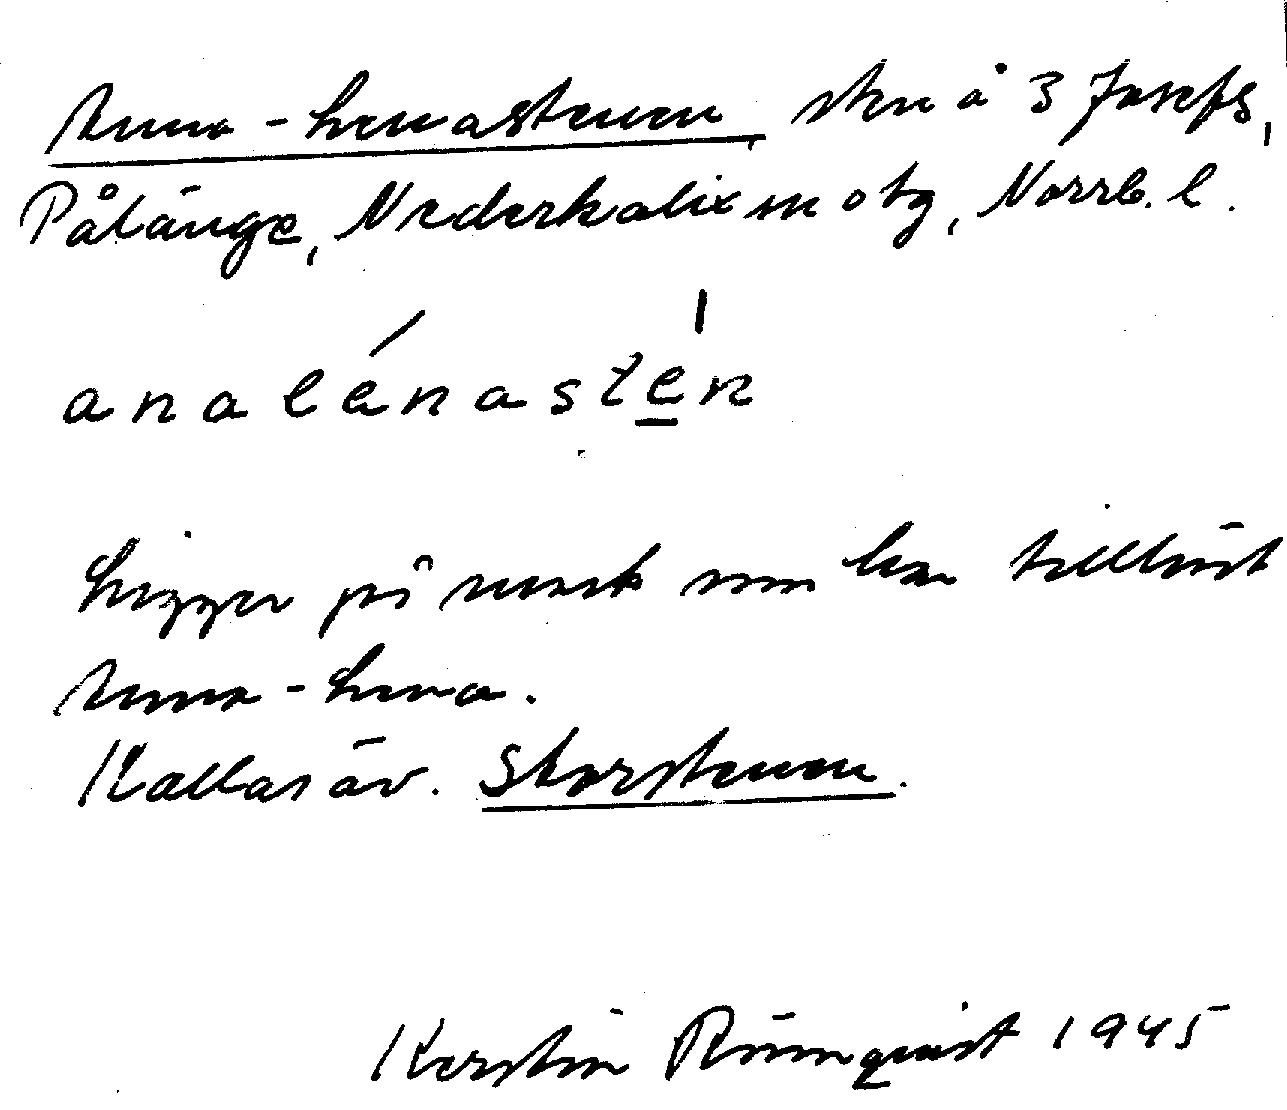 Anna-Lenastenen, sten å 3 Josefs,
Pålänge, Nederkalix sn o tg, Norrb. l.
analénastén
Ligger på mark som har tillhört
Anna-Lena.
Kallas äv. Storstenen.
Kerstin Rönnquist 1945